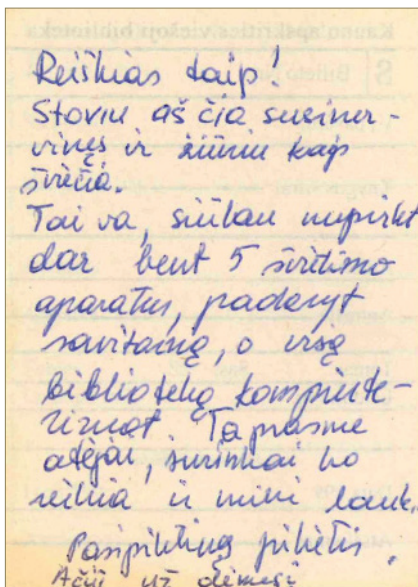 Reiškias taip!
Stoviu aš čia susiner-
vinęs ir žiūriu kaip
šviečia.
Tai va, siūlau nupirkt
dar bent 5 švitimo
aparatus, padaryt
savitarną, o visą
biblioteką kompiute-
rizuot Ta prasme
atėjai, surinkai ko
reikia ir mini lauk.
Pasipiktinęs pilietis.
Ačiū už dėmesį